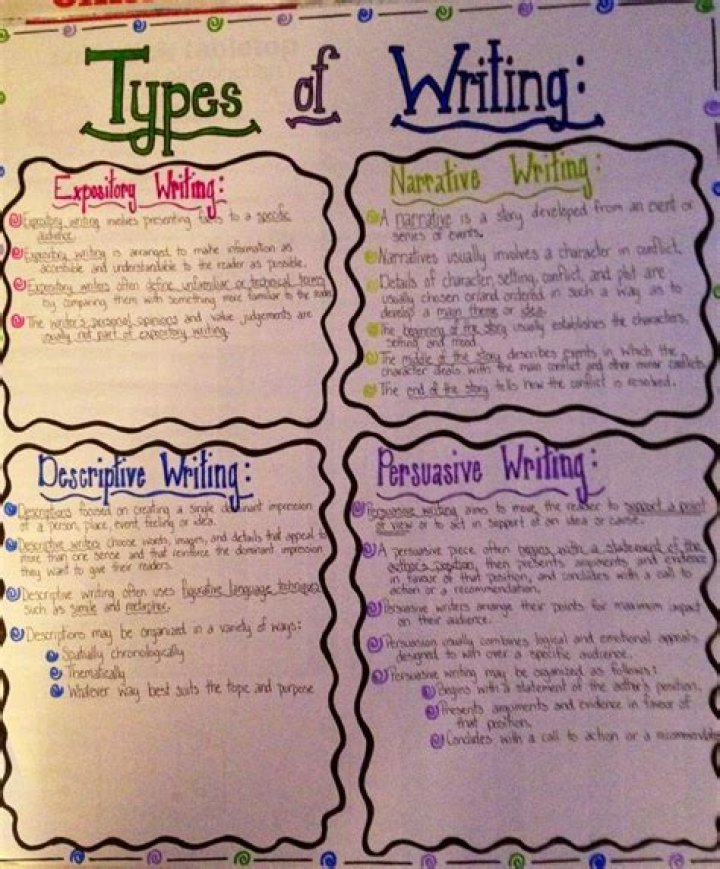 Types of Writing:
Expository Writing:
Expository writing involves presenting facts to a specific
audience.
Expository writing is arranged to make information as
accessible and understandable to the reader as possible.
Expository writers often define unfamiliar or technical terms
by comparing them with something more familiar to the reader.
The writer's personal opinions and value judgements are
usually not part of expository writing.
Narrative Writing:
A narrative is a story developed from an event or
series of events.
Narratives usually involves a character in conflict.
Details of character, setting, conflict, and plot are
usually chosen and ordered in such a way as to
develop a main theme or idea.
The beginning of the story usually establishes the characters,
setting and mood.
The middle of the story describes events in which the
character deals with the main conflict and other minor conflicts.
The end of the story tells how the conflict is resolved.
Descriptive Writing:
Descriptions focused on creating a single dominant impression
of a person, place, event, feeling or idea.
Descriptive writers choose words, images, and details that appeal to
more than one sense and that reinforce the dominant impression
they want to give their readers.
Descriptive writing often uses figurative language techniques
such as simile and metaphor.
Descriptions may be organized in a variety of ways:
Spatially chronologically
Thematically
Whatever way best suits the topic and purpose
Persuasive Writing:
Persuasive writing aims to move the reader to support a point
of view or to act in support of an idea or cause.
A persuasive piece often begins with a statement of the
author's position, then presents arguments and evidence
in favour of that position, and concludes with a call to
action or a recommendation.
Persuasive writers arrange their points for maximum impact
on their audience.
Persuasion usually combines logical and emotional appeals
designed to win over a specific audience.
Persuasive writing may be organized as follows:
Begins with a statement of the author's position.
Presents arguments and evidence in favour of
that position.
Concludes with a call to action or a recommendation